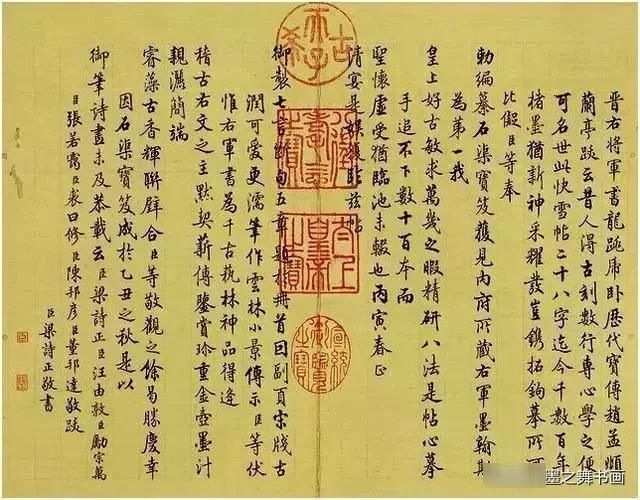 晉右將軍書龍跳虎卧歷代寶傳趙孟頫
蘭亭跋云昔人得古刻數行專心學之便
可名世此快雪帖二十八字迄今千數百年
楮墨猶新神采耀發豈鐫拓鉤摹所可
比儗臣等奉
勅編纂石渠寶笈獲見內府所藏右軍墨翰斯
為第一我
皇上好古敏求萬幾之暇精研八法是帖心摹
手追不下數十百本而
聖懷虛受猶臨池未輟也丙寅春正
清宴是娛復臨茲帖
御製七言斷句五章題於冊首因副頁宋牋古
潤可愛更濡筆作雲林小景傳示臣等伏
惟右軍書為千古藝林神品得逢
稽古右文之主默契薪傳鑒賞珍重金壺墨汁
親灑簡端
睿藻古香輝聯璧合臣等敬觀之餘曷勝慶幸
因石渠寶笈成於乙丑之秋是以
御筆詩畫未及恭載云臣梁詩正臣汪由敦臣勵宗萬
臣張若靄臣裘曰修臣陳邦彥臣董邦達敬跋
臣梁詩正敬書
古希天子
八徵耄念之寶
太上皇帝之寶
宣統御覽之寶
墨之舞书画